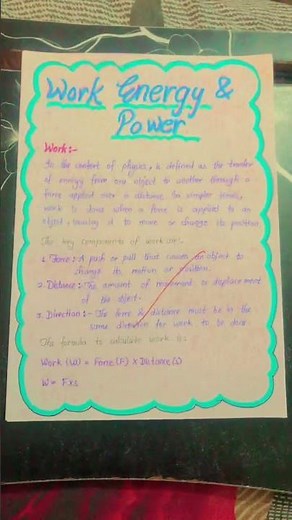 Work Energy &
Power
Work:-
In the context of physics, is defined as the transfer
of energy from one object to another through a
force applied over a distance. In simpler terms,
work is done when a force is applied to an
object, causing it to move or change its position
The key components of work are:-
1. Force:- A push or pull that causes an object to
change its motion or position.
2. Distance: The amount of movement or displacement
of the object.
3. Direction:- The force & distance must be in the
same direction for work to be done.
The formula to calculate work is:
Work (W) = Force (F) × Distance
W = F×s